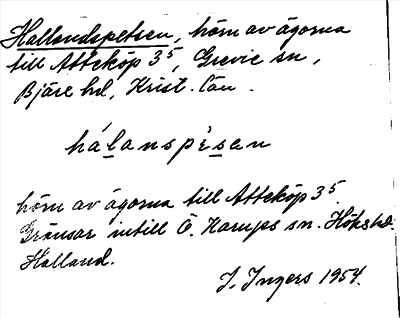 Hallandspelsen, hörn av ägorna
till Atteköp 3⁵, Grevie sn,
Bjäre hd, Krist. län.
hálanspèsen
hörn av ägorna till Atteköp 3⁵
Gränsar intill Ö. Karups sn. Höks hd.
Halland.
I. Ingers 1954.